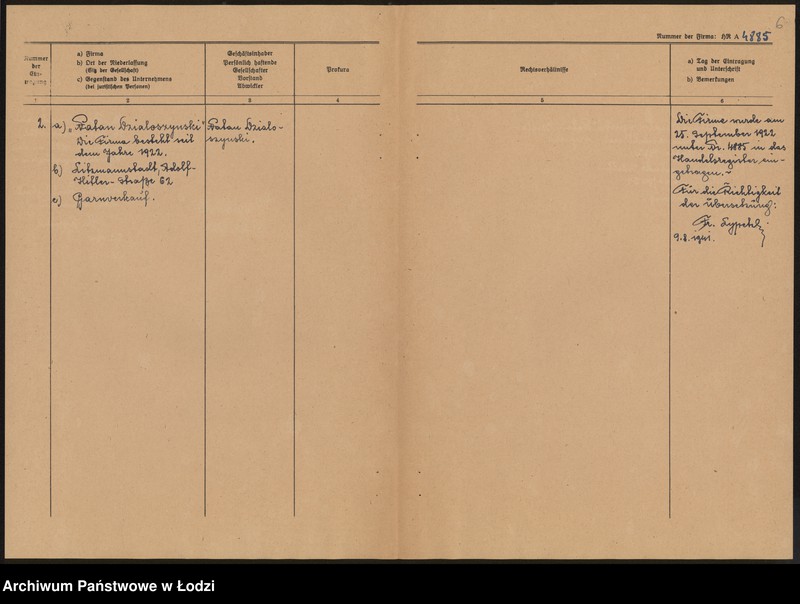 6
Nummer der Firma: HR A 4885
Nummer
der
Ein-
tragung
a) Firma
b) Ort der Niederlassung
(Sitz der Gesellschaft)
c) Gegenstand des Unternehmens
(bei juristischen Personen)
Geschäftsinhaber
Persönlich haftende
Gesellschafter
Vorstand
Abwickler
Prokura
Rechtsverhältnisse
a) Tag der Eintragung
und Unterschrift
b) Bemerkungen
1 2 3 4 5 6
2. a) „Natan Dzialoszynski"
Die Firma besteht seit
dem Jahre 1922.
b) Litzmannstadt, Adolf-
Hitler-Straße 62
c) Garnverkauf.
Natan Dzialo-
szynski.
Die Firma wurde am
25. September 1922
unter Nr. 4885 in das
Handelsregister ein-
getragen.-
Für die Richtigkeit
der Übersetzung:
9.8.1941.
Archiwum Państwowe w Łodzi